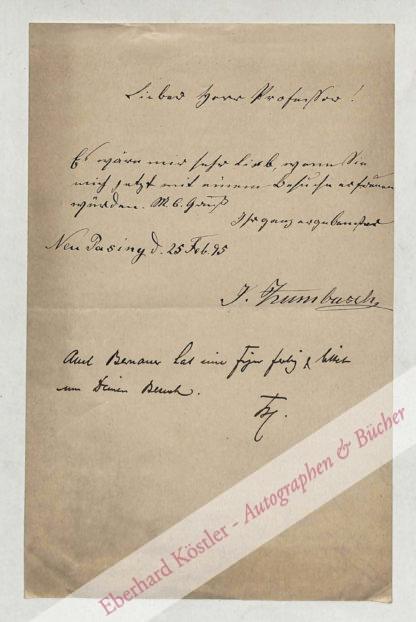 Lieber Herr Professor!
Es wäre mir sehr lieb, wenn Sie
mich jetzt mit einem Besuche erfreuen
würden. M. b. Gruß
Ihr ganz ergebenster
Neu Pasing d. 25 Feb. 95
J. Zumbusch
Auch Bernauer hat eine Figur fertig & bittet
um Deinen Besuch.
Eberhard Köstler - Autographen & Bücher